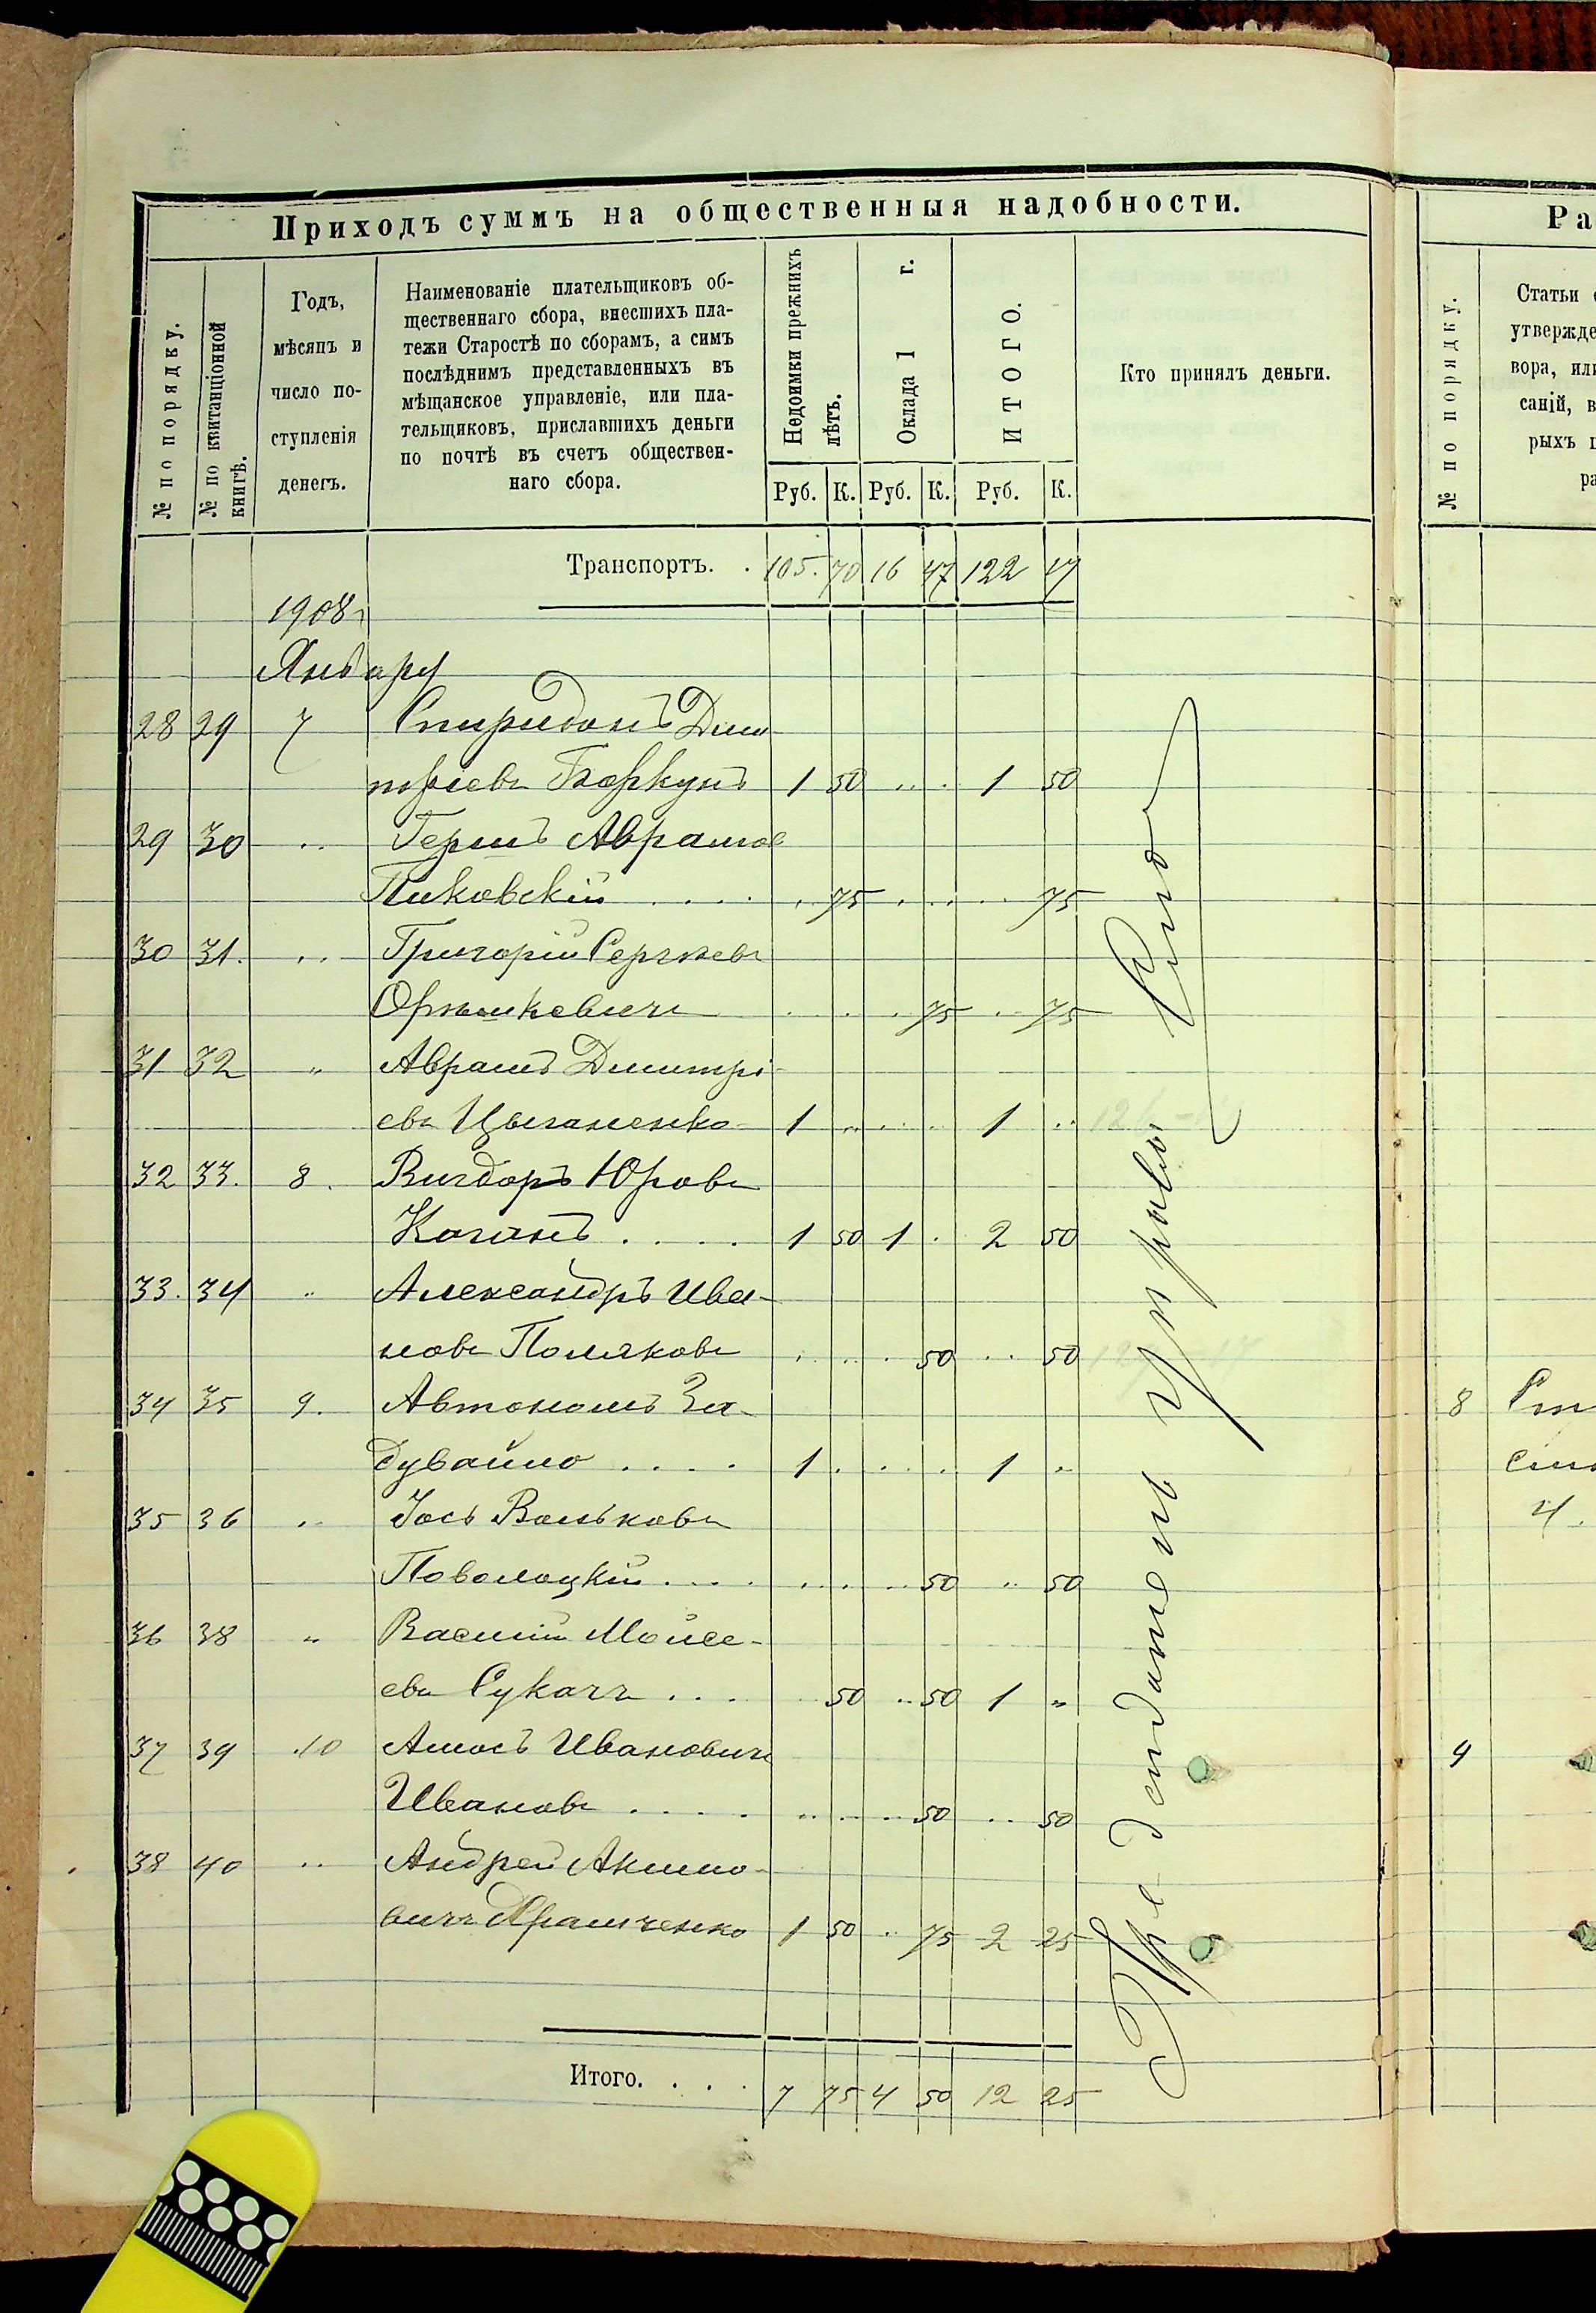 Приходъ суммъ на общественныя надобности.
№ по порядку.
№ по квитанціонной книгѣ.
Годъ, мѣсяцъ и число поступленія денегъ.
Наименованіе плательщиковъ об-
щественнаго сбора, внесшихъ пла-
тежи Старостѣ по сборамъ, а симъ
послѣднимъ представленныхъ въ
мѣщанское управленіе, или пла-
тельщиковъ, приславшихъ деньги
по почтѣ въ счетъ обществен-
наго сбора.
Недоимки прежнихъ лѣтъ.
Оклада 1 г.
ИТОГО.
Кто принялъ деньги.
Руб. К. Руб. К. Руб. К.
Транспортъ. . 105. 70 16 47 122 17
1908 г
Январу
28 29 7 Спиридонъ Дим
тріевъ Коркунъ 1 50 .. . 1 50
29 30 .. Гершъ Абрамов
Пиковскій . . . . . 75 . . . . 75
30 31. .. Григорій Сергѣевъ
. . . 75 . 75
31 32 „ Аврамъ Димитрі-
евъ Цыганенко 1 .. .. . 1 ..
32 33. 8. Вигдоръ Юровъ
Каганъ . . . . 1 50 1 . 2 50
33. 34 .. Александръ Ива-
новъ Поляковъ . .. . 50 .. 50
34 35 9. Автономъ За-
дувайло . . . . 1 . . . . 1 „
35 36 .. Іось Вольковъ
Поволоцкій . . . . . . . . 50 .. 50
36 38 „ Василій Мойсе-
евъ Сукачъ . . . 50 .. 50 1 „
37 39 10 Амосъ Ивановичъ
Ивановъ . . . . .. .. .. 50 .. 50
38 40 .. Андрей Акимо-
вичъ Абрамченко 1 50 .. 75 2 25
Итого. . . . 7 75 4 50 12 25
Предсидатель управы
Ра
№ по порядку.
Статьи
утвержде
вора, или
саній, в
рыхъ
ра
8
4.
9